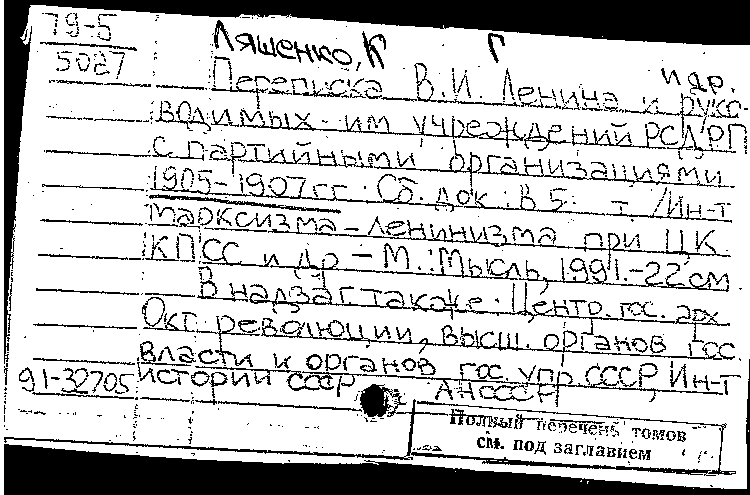 79-5
5027
Ляшенко, К Г
и др.
Переписка В.И. Ленина и руко-
водимых им учреждений РСДРП
с партийными организациями
1905-1907 гг. Сб. док. В 5 т. /Ин-т
марксизма-ленинизма при ЦК
КПСС и др - М.: Мысль, 1991.-22 см
В надзаг также: Центр. гос. арх
Окт. революции, высш. органов гос.
власти и органов гос. упр. СССР, Ин-т
91-32705 истории СССР АН СССР
Полный перечень томов
см. под заглавием